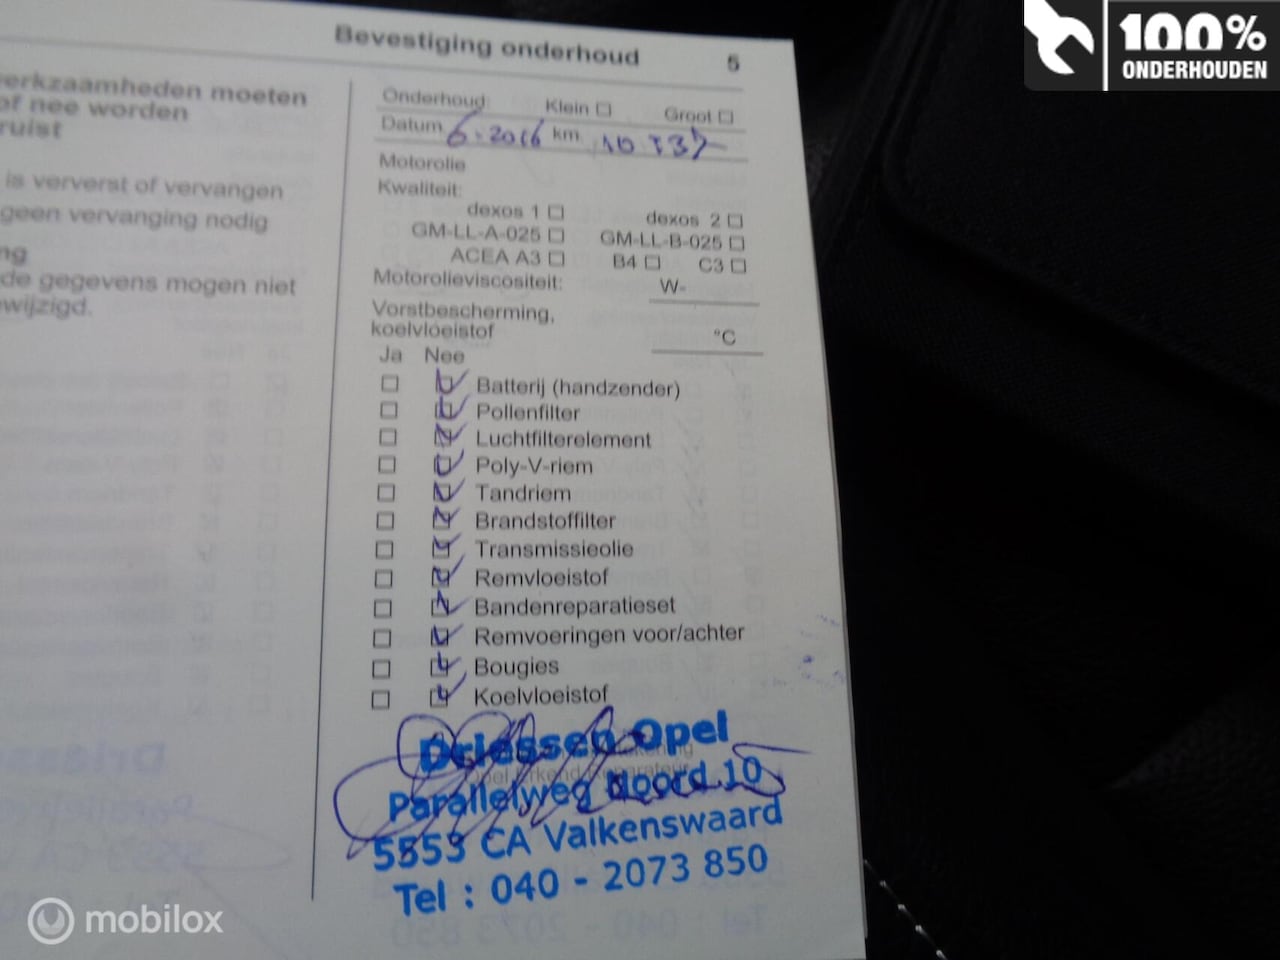 100%
ONDERHOUDEN
Bevestiging onderhoud 5
erkzaamheden moeten
of nee worden
ruist
is ververst of vervangen
geen vervanging nodig
ng
de gegevens mogen niet
wijzigd.
Onderhoud: Klein Groot
Datum 6-2016 km.
Motorolie
Kwaliteit:
dexos 1 dexos 2
GM-LL-A-025 GM-LL-B-025
ACEA A3 B4 C3
Motorolieviscositeit: W-
Vorstbescherming,
koelvloeistof °C
Ja Nee
Batterij (handzender)
Pollenfilter
Luchtfilterelement
Poly-V-riem
Tandriem
Brandstoffilter
Transmissieolie
Remvloeistof
Bandenreparatieset
Remvoeringen voor/achter
Bougies
Koelvloeistof
Driessen Opel
Parallelweg Noord 10
5553 CA Valkenswaard
Tel : 040 - 2073 850
mobilox